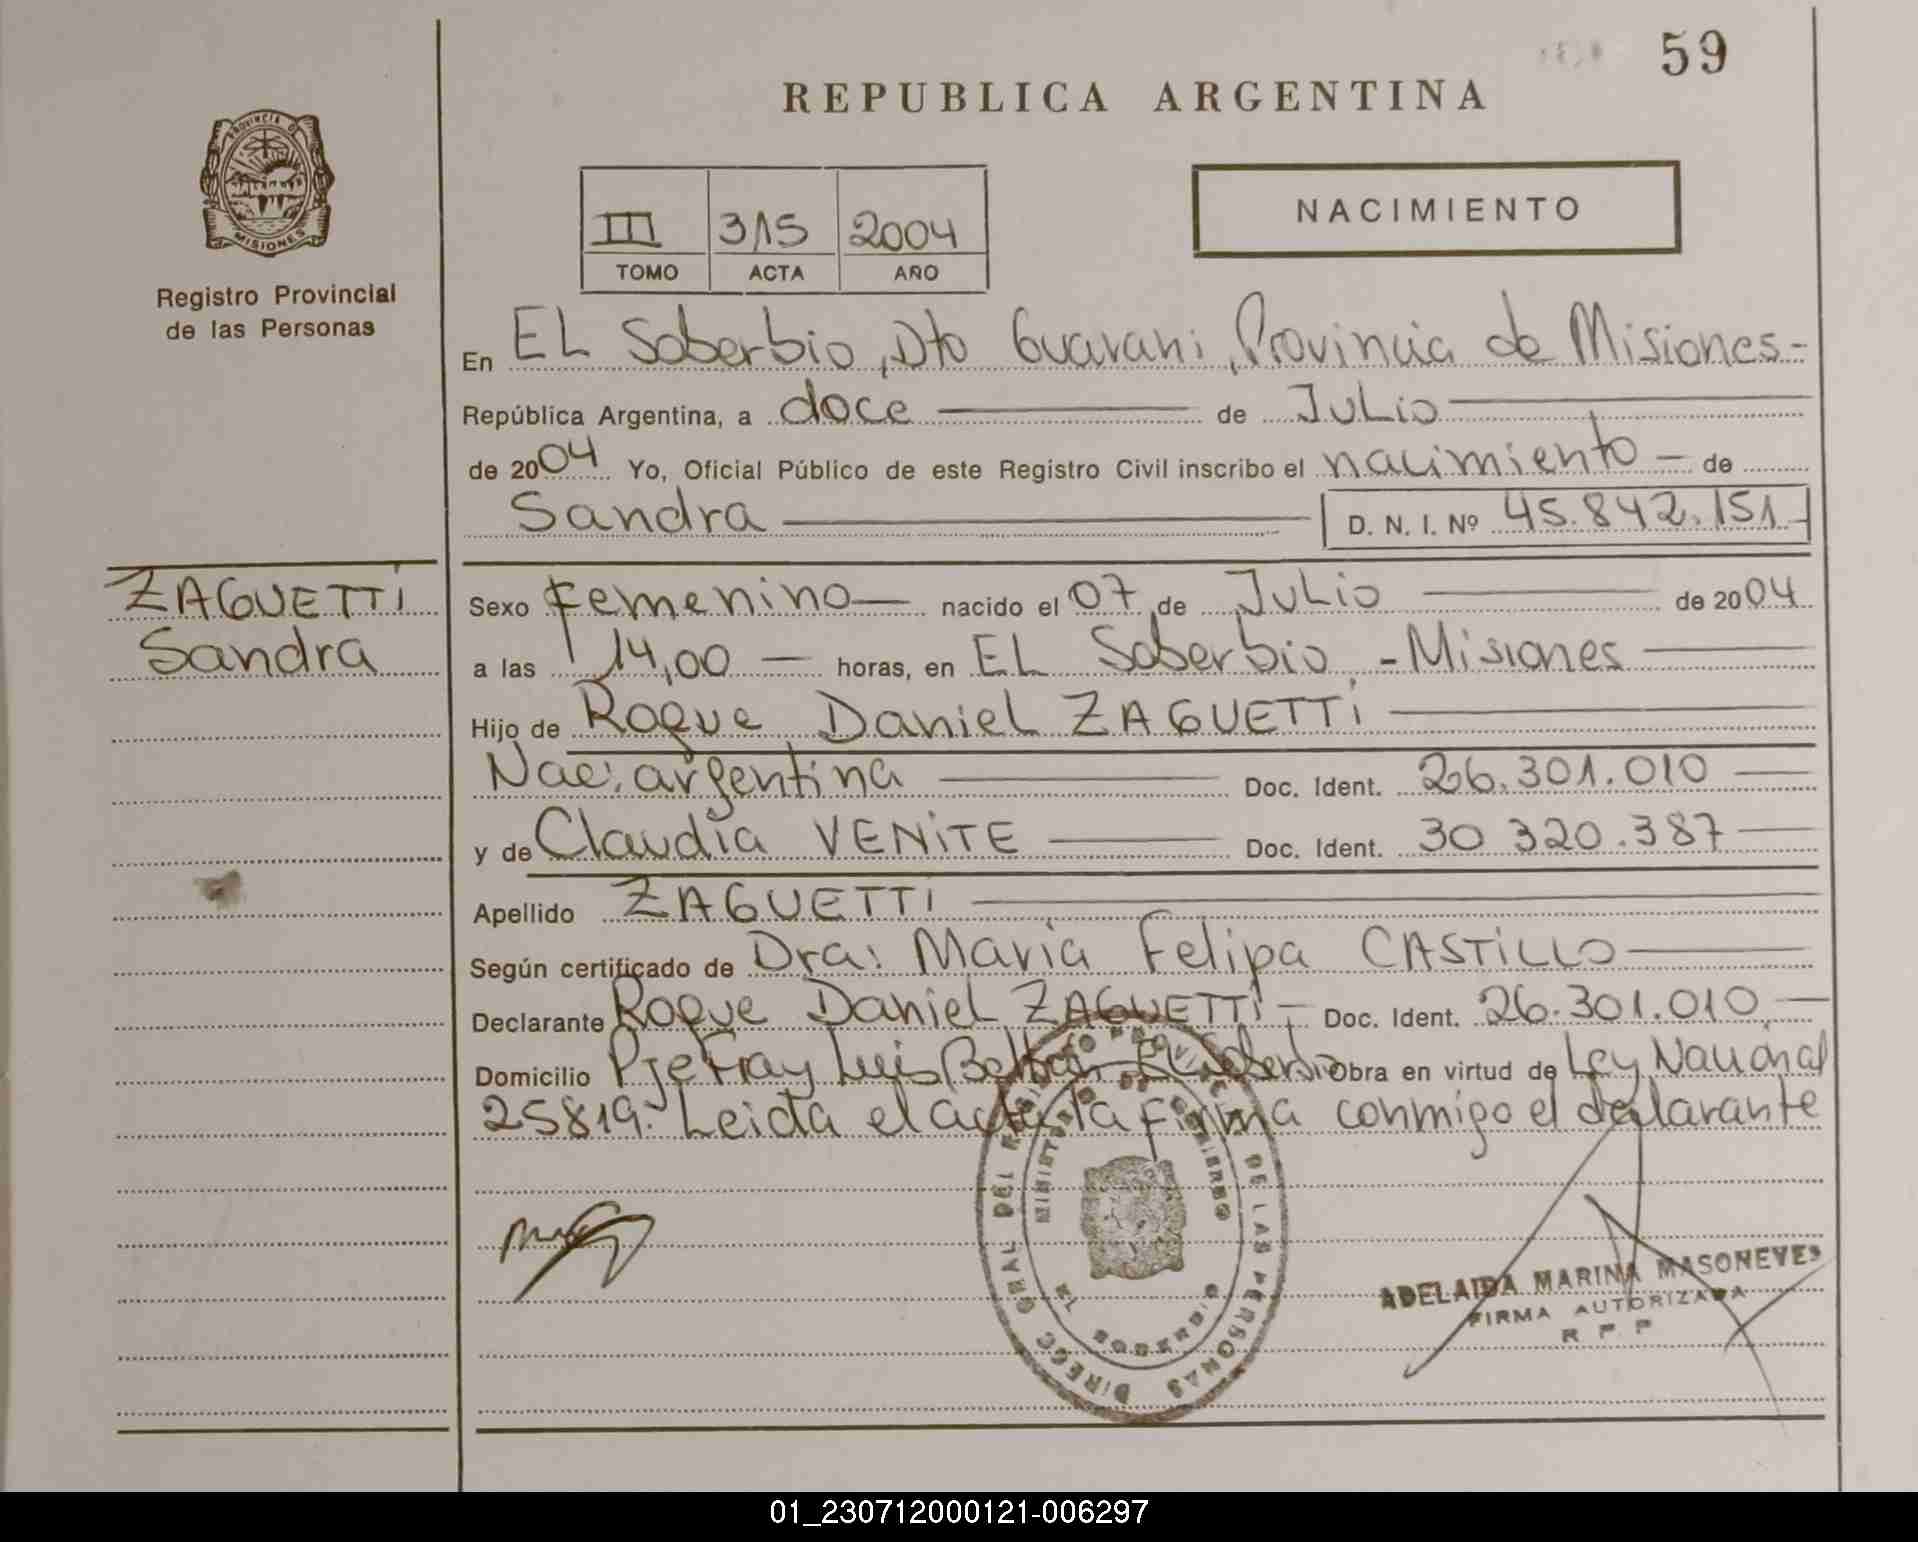 59
REPUBLICA ARGENTINA
PROVINCIA DE
MISIONES
Registro Provincial
de las Personas
III 315 2004
TOMO ACTA AÑO
NACIMIENTO
En EL Soberbio, Dto Guarani, Provincia de Misiones-
República Argentina, a doce de JuLio
de 2004 Yo, Oficial Público de este Registro Civil inscribo el nacimiento - de
Sandra D. N. I. Nº 45.842.151-
ZAGUETTi
Sandra
Sexo Femenino nacido el 07 de JuLio de 2004
a las 14,00 horas, en EL Soberbio - Misiones
Hijo de Roque Daniel ZAGUETTi
Nac: argentina Doc. Ident. 26.301.010
y de Claudia VENiTE Doc. Ident. 30 320.387
Apellido ZAGUETTi
Según certificado de Dra: Maria Felipa CASTiLLO
Declarante Roque Daniel ZAGUETTi- Doc. Ident. 26.301.010
Domicilio Pje Fray Luis Beltran El Soberbio Obra en virtud de Ley Nacional
25819. Leida el acta la firma conmigo el declarante
DIRECC GRAL DEL REGISTRO PROVINCIAL DE LAS PERSONAS
MINISTERIO DE GOBIERNO
MISIONES
ADELAIDA MARINA MASONEVES
FIRMA AUTORIZADA
R P P
01_230712000121-006297